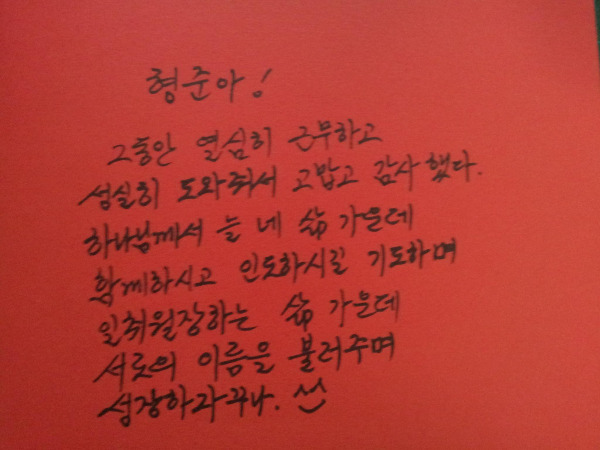 형준아!
그동안 열심히 근무하고
성실히 도와줘서 고맙고 감사했다.
하나님께서 늘 네 삶 가운데
함께하시고 인도하시길 기도하며
일취월장하는 삶 가운데
서로의 이름을 불러주며
성장하자꾸나.